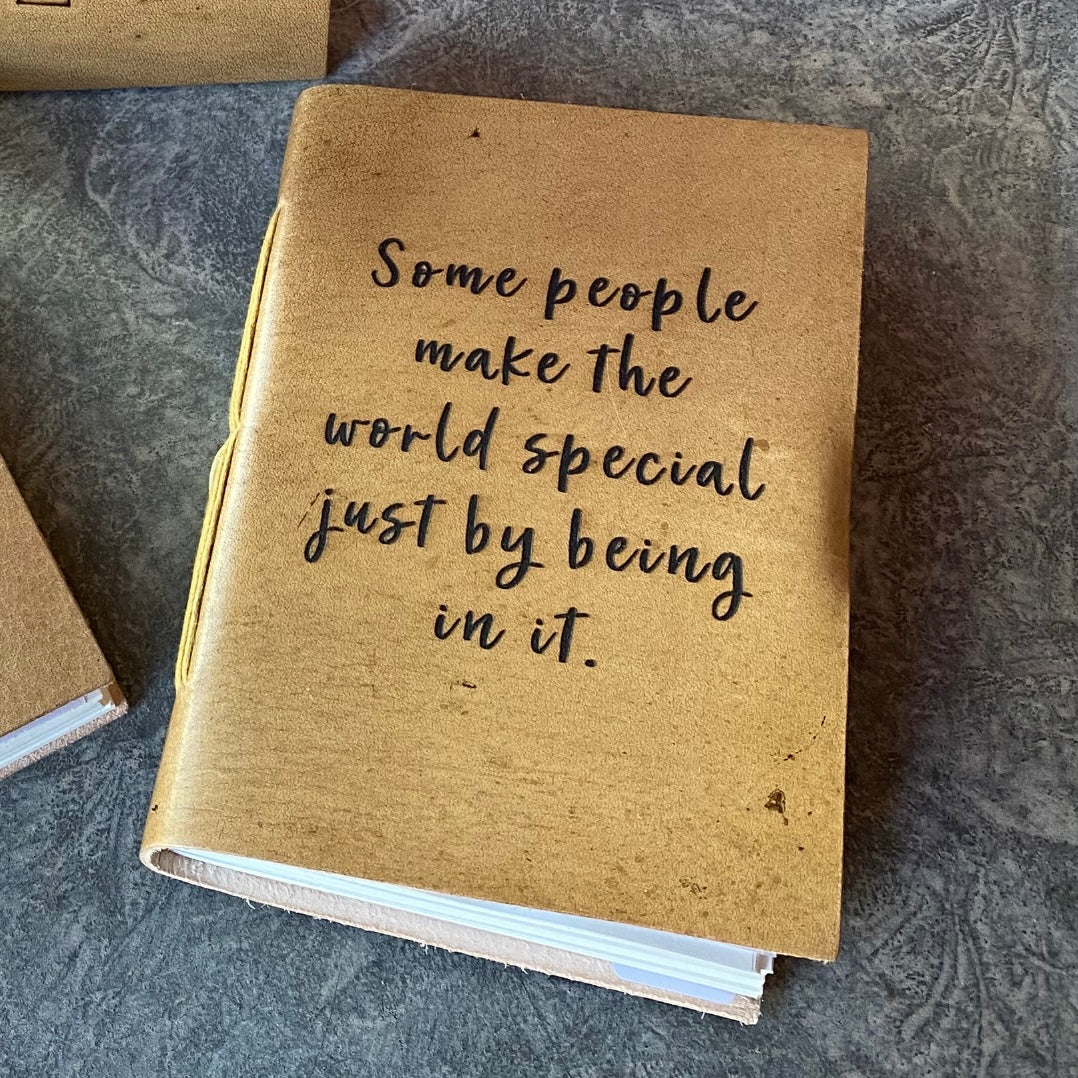 Some people
make the
world special
just by being
in it.